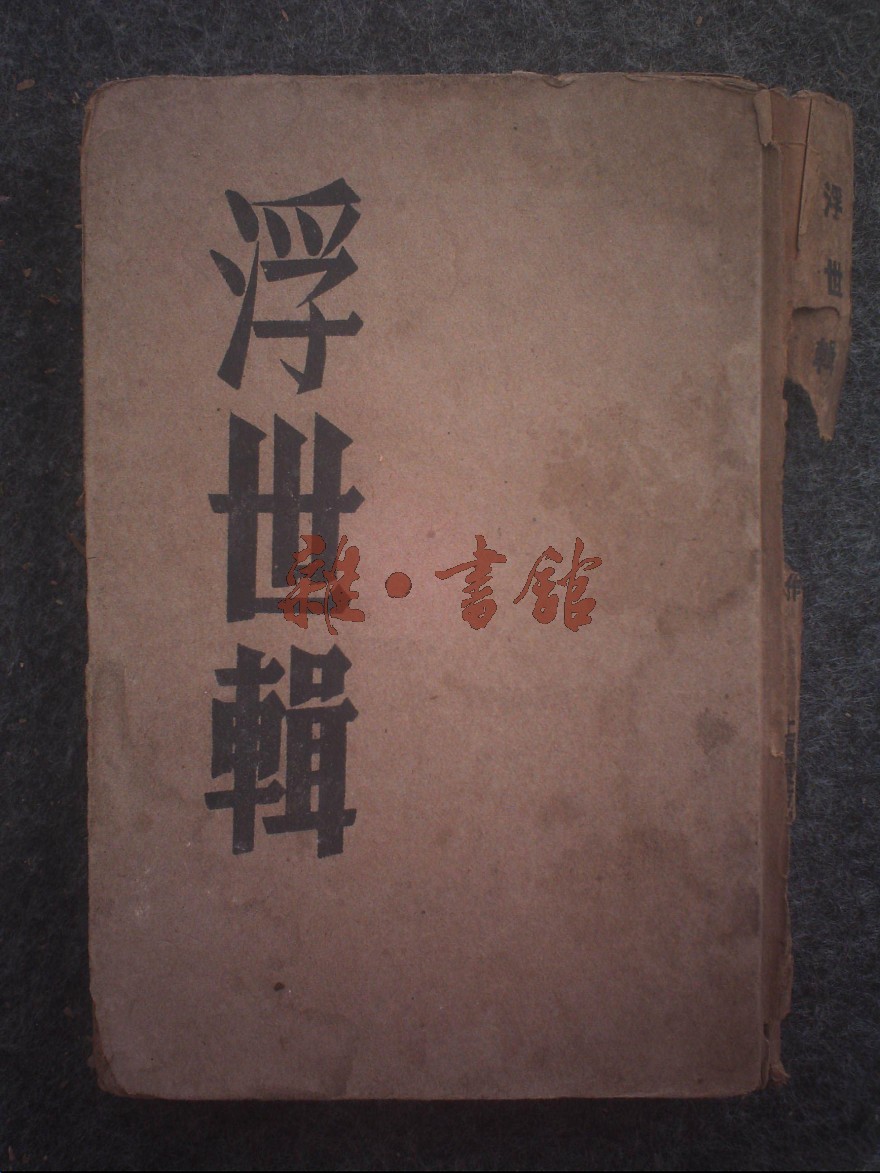 浮世輯
雜·書館
浮世輯